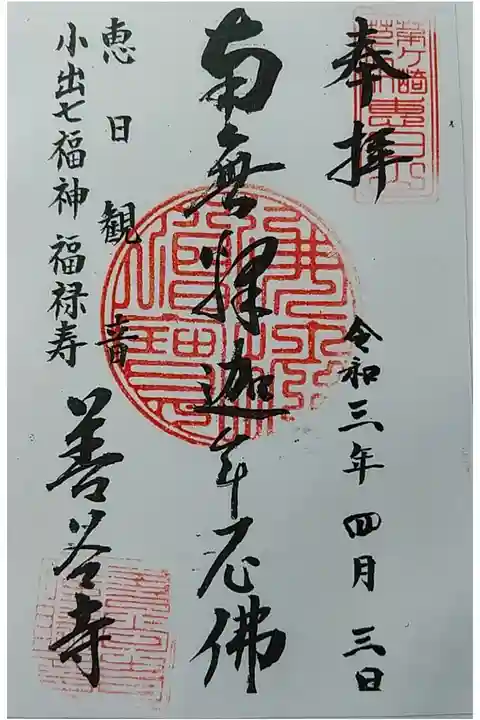 奉拝
茅ヶ崎
令和三年四月三日
南無釋迦牟尼佛
恵日観音
小出七福神 福禄寿
善谷寺